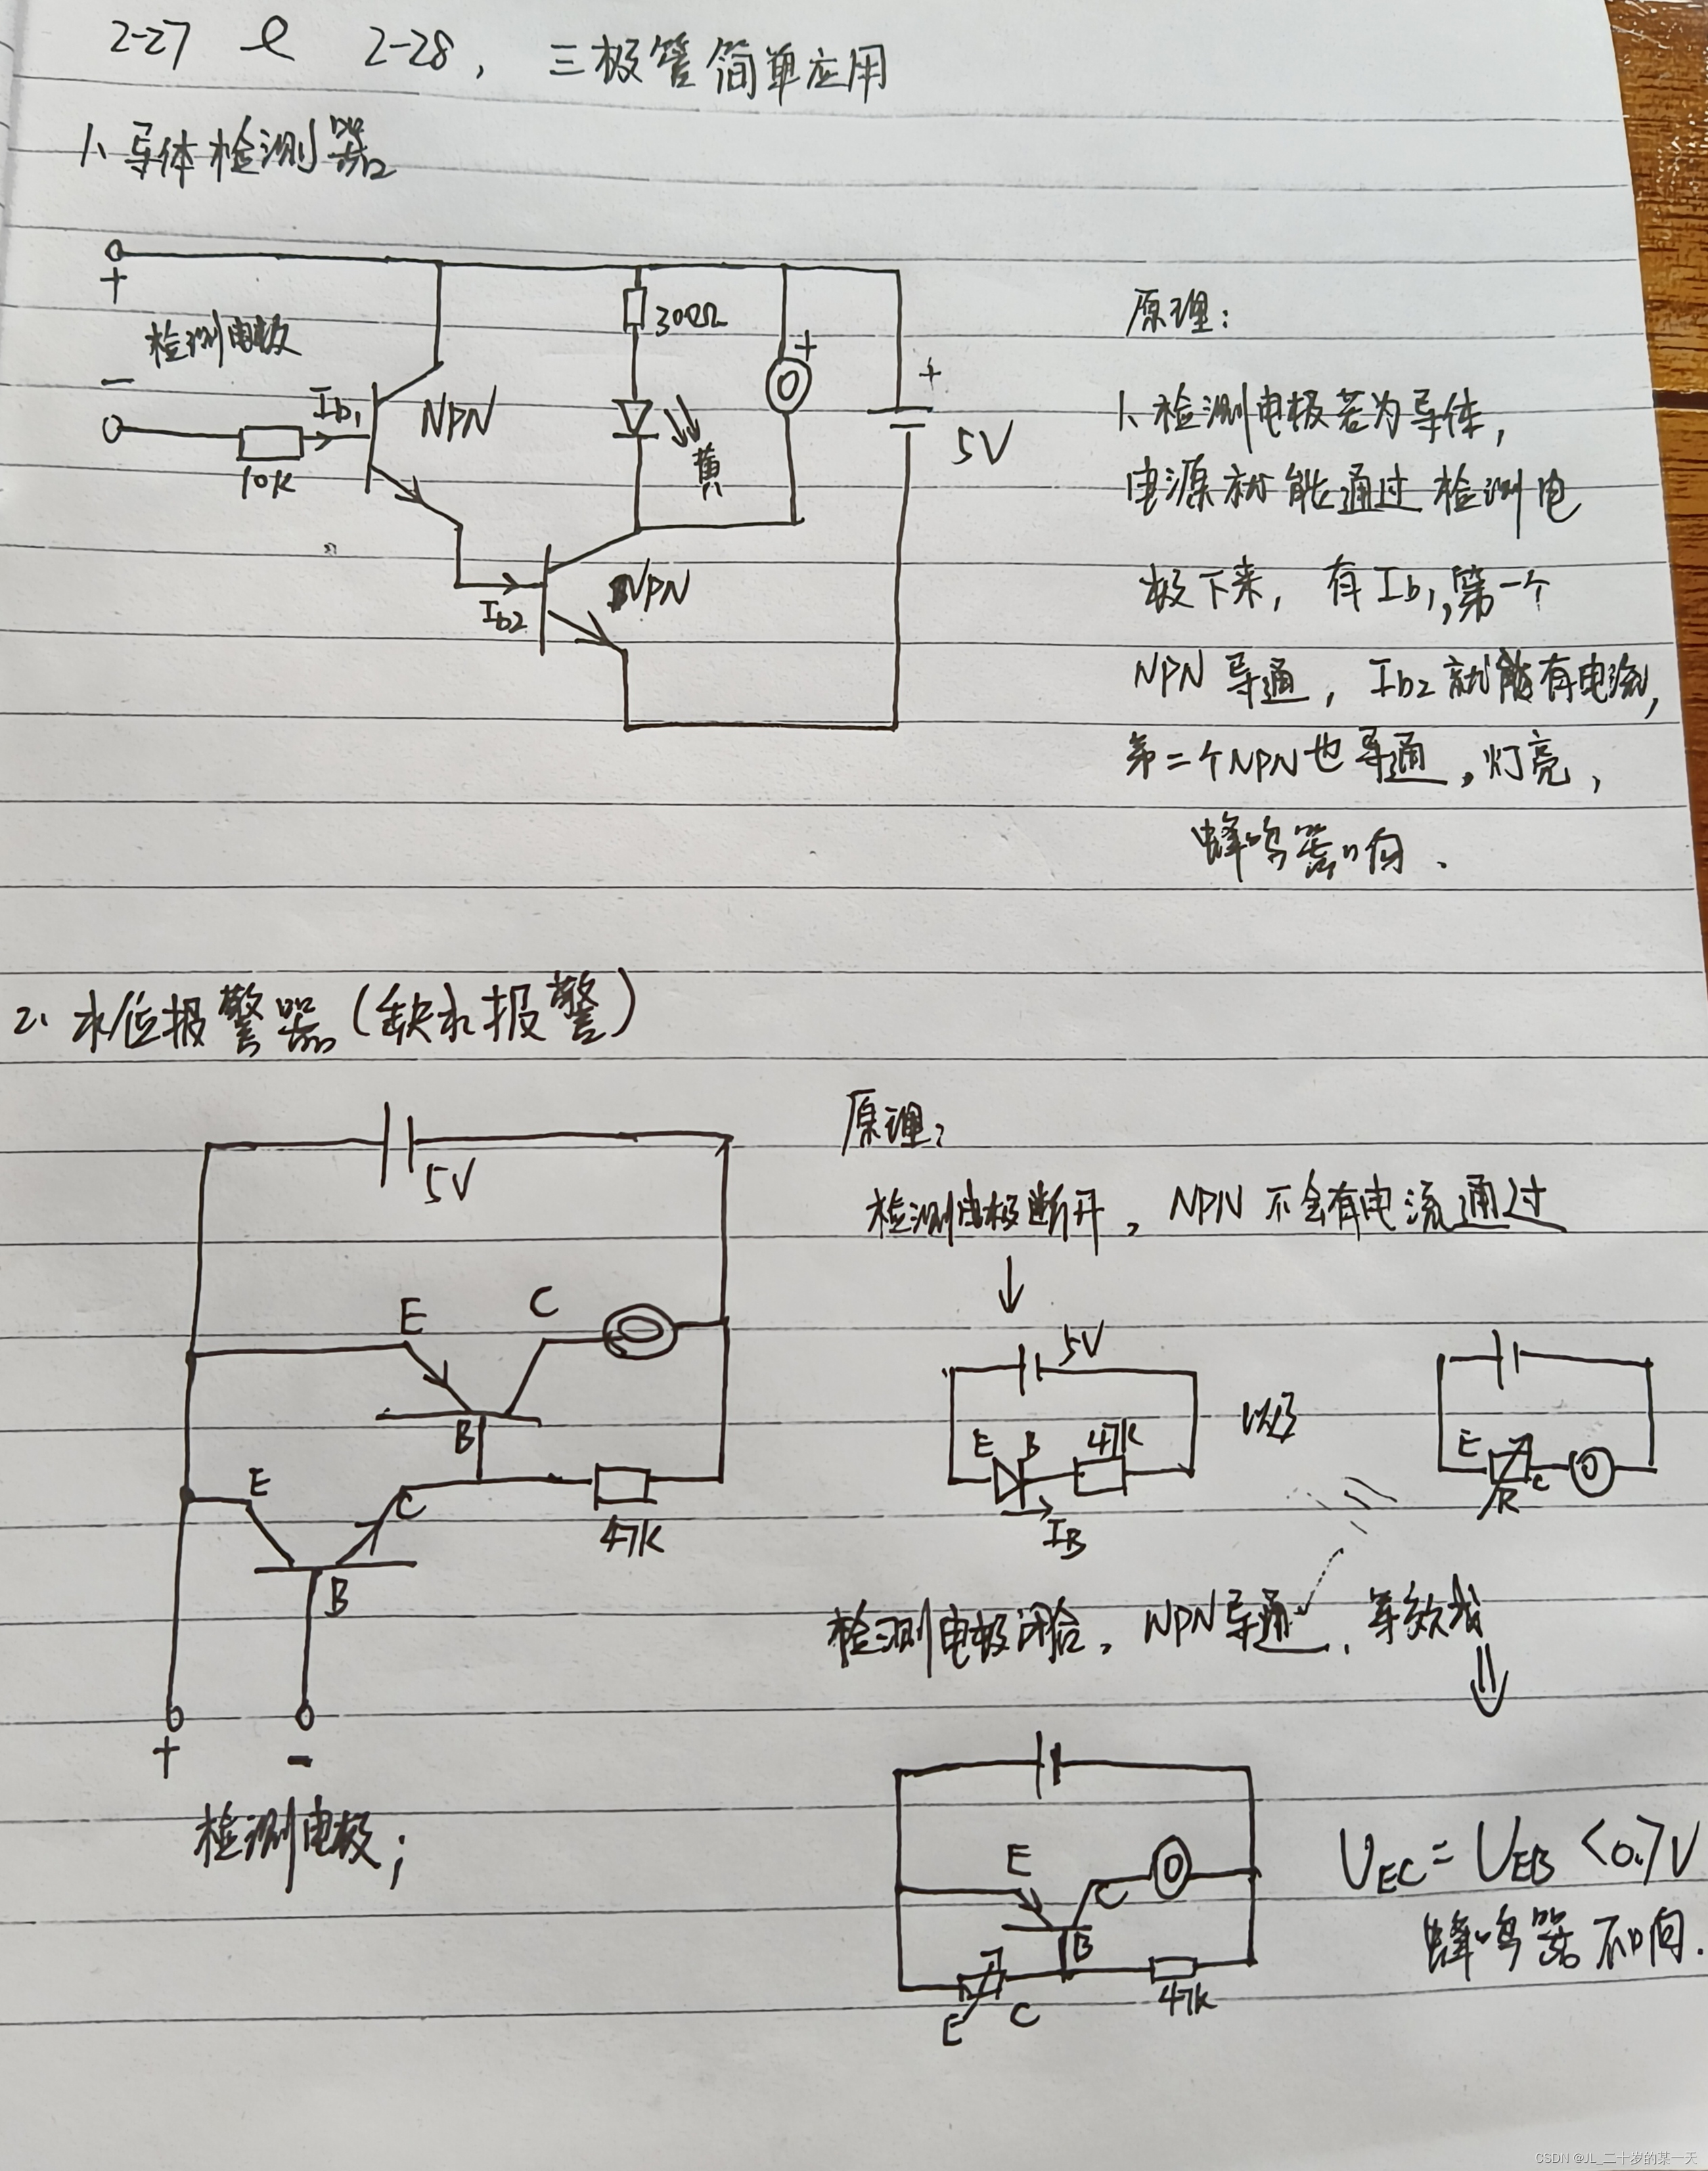 2-27 & 2-28, 三极管简单应用
1、导体检测器
+
检测电极
-
Ib1
10K
NPN
300Ω
黄
+
+
5V
Ib2
NPN
原理:
1、检测电极若为导体,
电源就能通过检测电
极下来, 有Ib1,第一个
NPN 导通, Ib2 就能有电流,
第二个NPN也导通,灯亮,
蜂鸣器响.
2、水位报警器(缺水报警)
5V
E
C
B
E
C
B
47K
+
-
检测电极;
原理:
检测电极断开, NPN 不会有电流通过
5V
E
B
47K
IB
以及
E
R
C
检测电极闭合, NPN导通, 等效成
E
C
B
E
C
47K
UEC = UEB <0.7V
蜂鸣器不响.
CSDN @JL_二十岁的某一天